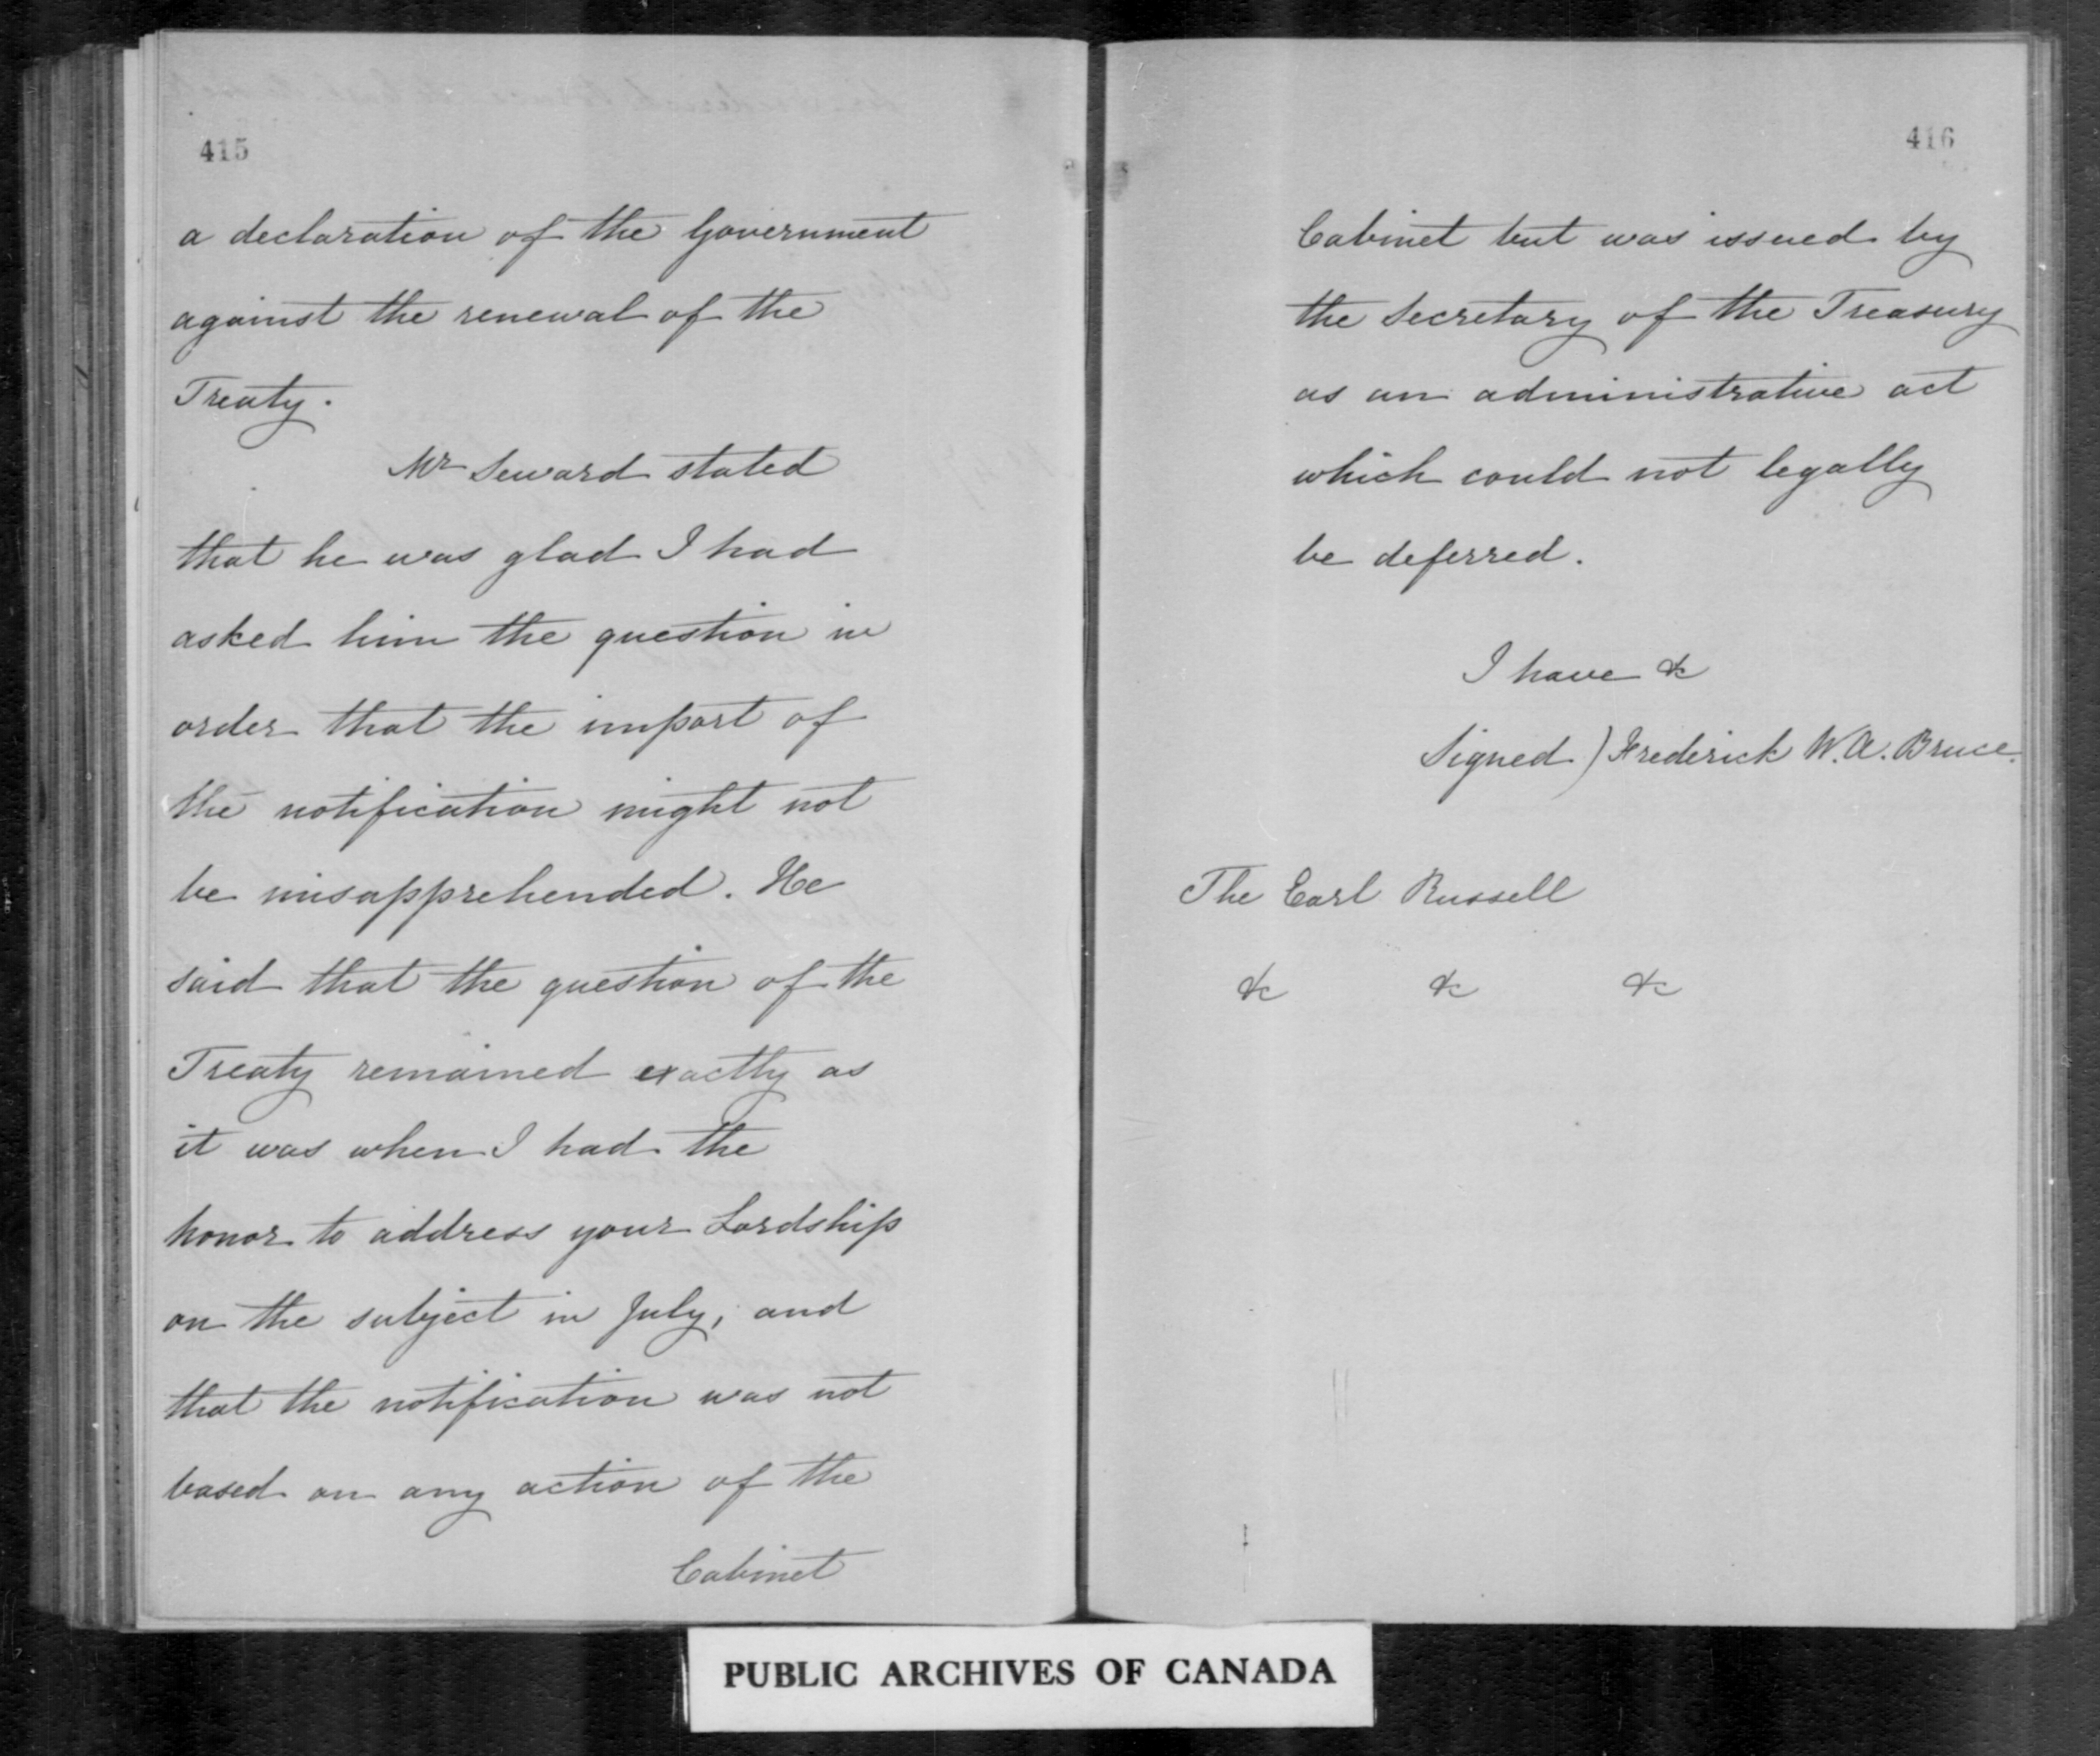 415
a declaration of the Government
against the renewal of the
Treaty.
Mr Seward stated
that he was glad I had
asked him the question in
order that the import of
the notification might not
be misapprehended. He
said that the question of the
Treaty remained exactly as
it was when I had the
honor to address your Lordship
on the subject in July, and
that the notification was not
based on any action of the
Cabinet
416
Cabinet but was issued by
the Secretary of the Treasury
as an administrative act
which could not legally
be deferred.
I have &c
Signed) Frederick W. A. Bruce.
The Earl Russell
&c &c &c
PUBLIC ARCHIVES OF CANADA